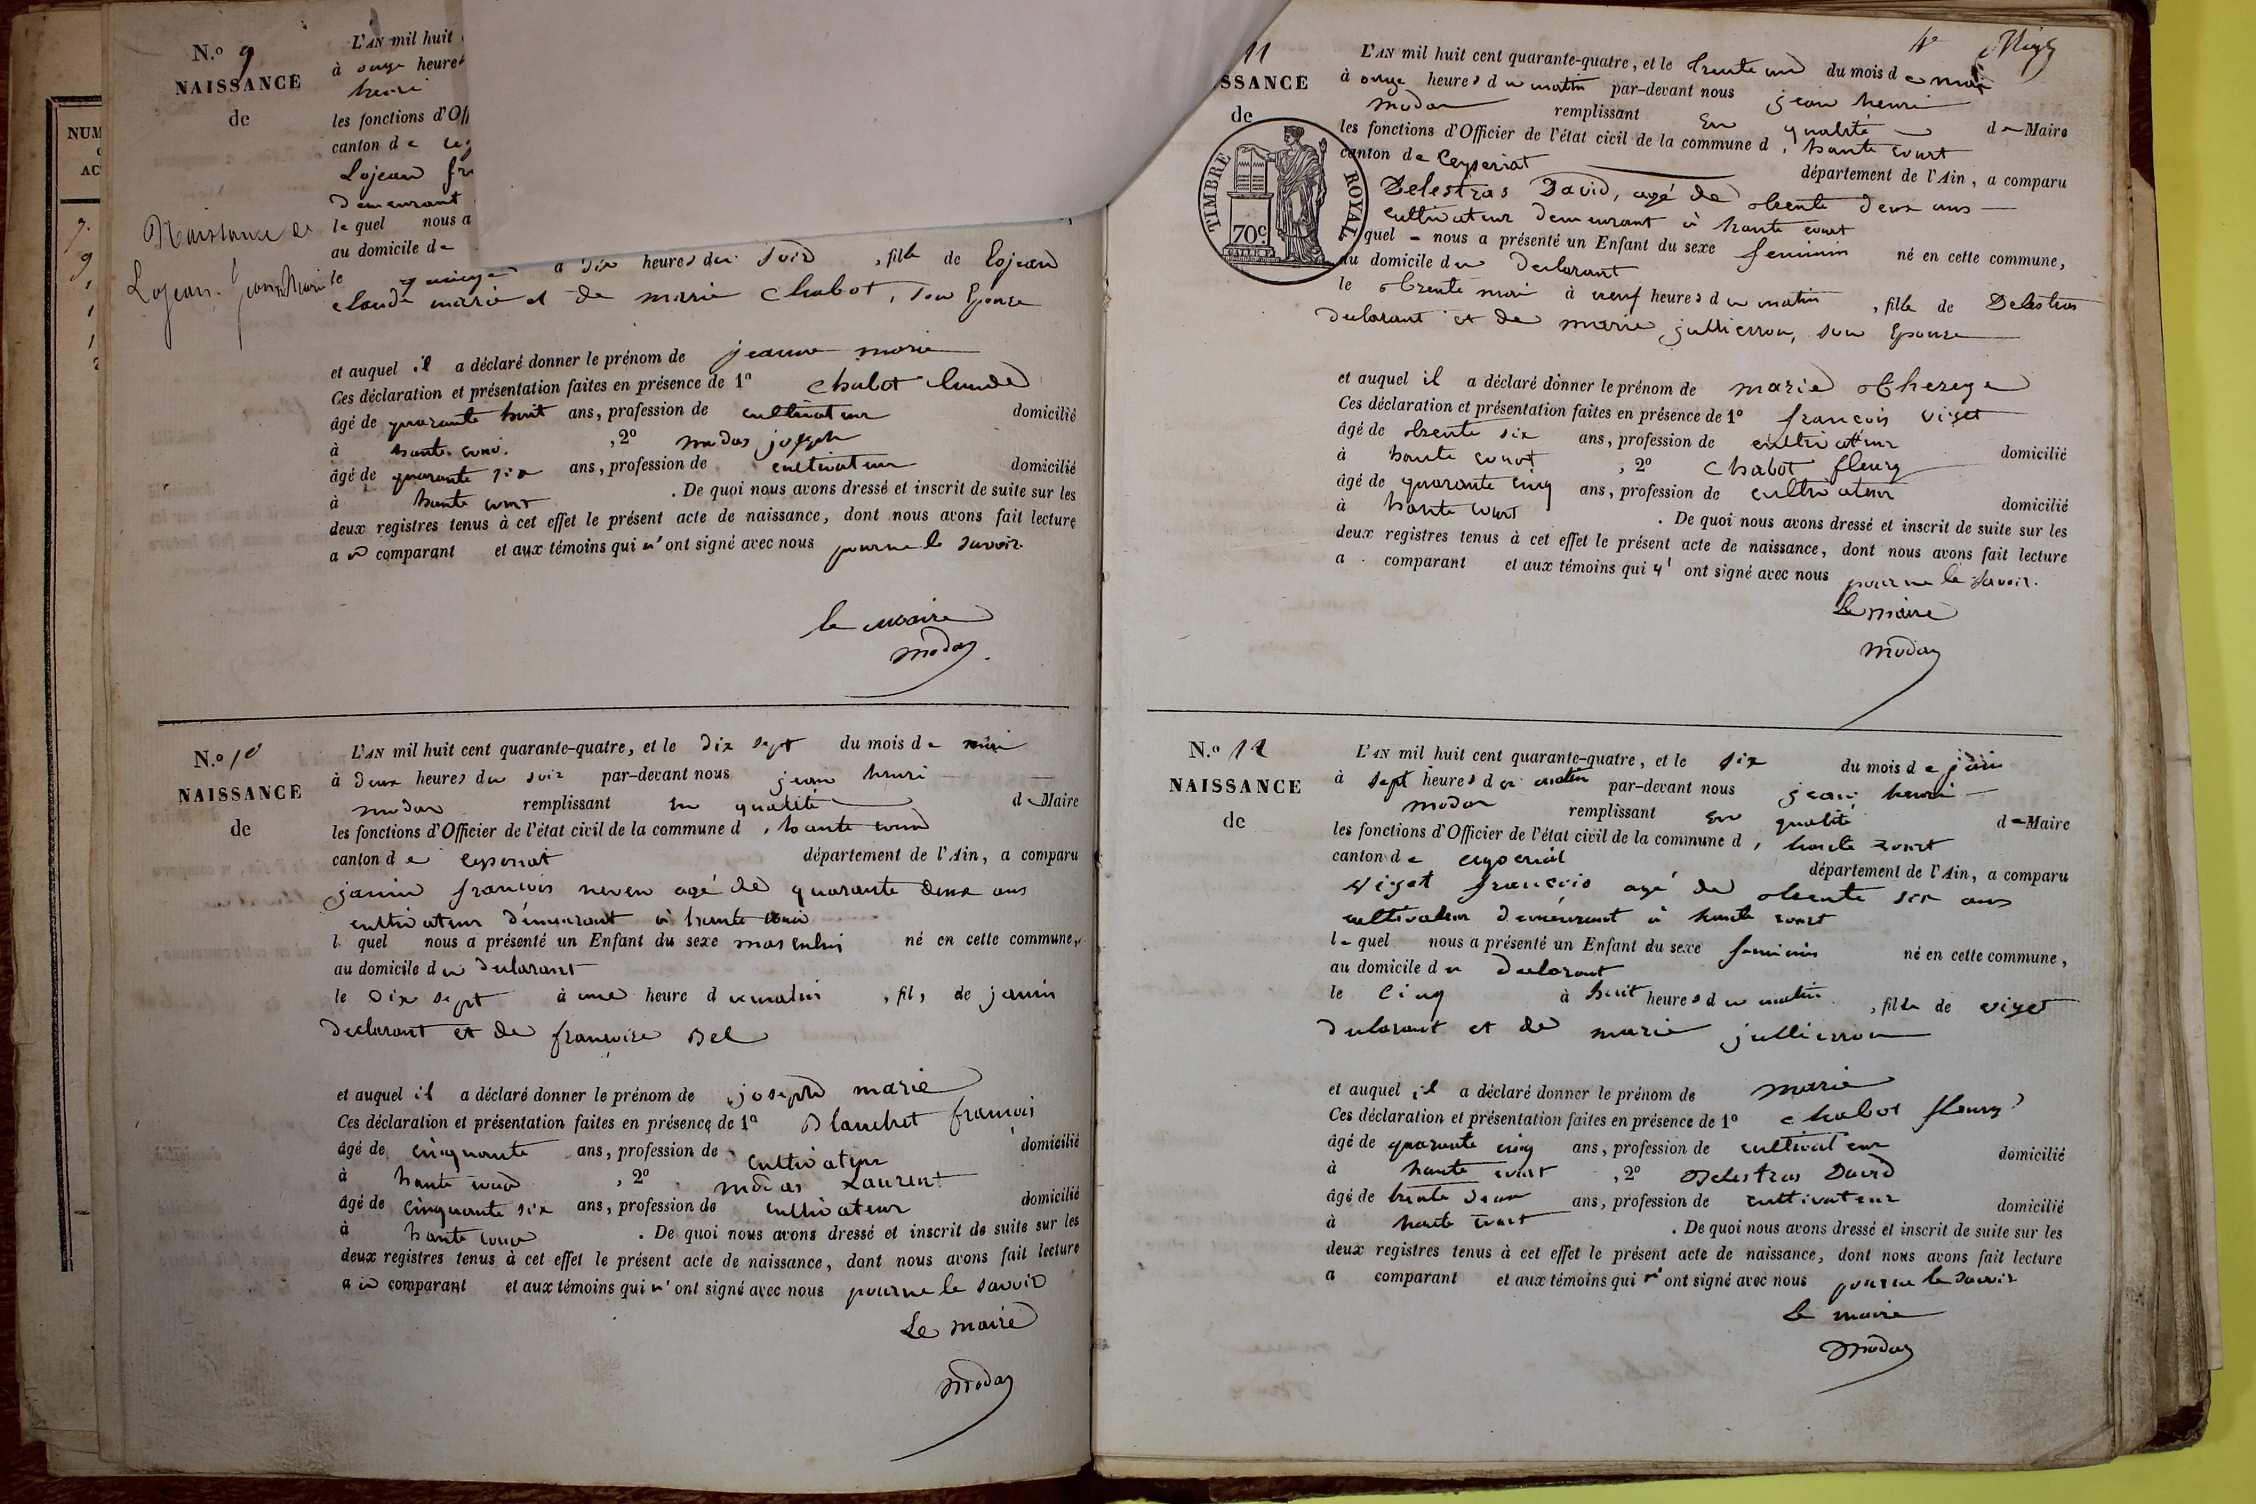 N.º 9
NAISSANCE
de
Naissance de
Lojean Jeanne Marie
L'AN mil huit
à onze heures
henri
les fonctions d'Off
canton de
Lojean
demeurant
le quel nous a
au domicile de
le à six heures du soir , fille de Lojean
claude marie et de marie Chabot, son Epouse
et auquel il a déclaré donner le prénom de jeanne marie
Ces déclaration et présentation faites en présence de 1º Chabot claude
âgé de quarante huit ans, profession de cultivateur domicilié
à haute cour , 2º modas joseph
âgé de quarante six ans, profession de cultivateur domicilié
à haute court . De quoi nous avons dressé et inscrit de suite sur les
deux registres tenus à cet effet le présent acte de naissance, dont nous avons fait lecture
au comparant et aux témoins qui n'ont signé avec nous pour ne le savoir
le maire
modas
N.º 10
NAISSANCE
de
L'AN mil huit cent quarante-quatre, et le dix sept du mois de mai
à deux heures du soir par-devant nous jean henri
modas remplissant en qualité de Maire
les fonctions d'Officier de l'état civil de la commune d, haute court
canton de ceyseriat département de l'Ain, a comparu
janin françois neveu agé de quarante deux ans
cultivateur demeurant à haute cour
le quel nous a présenté un Enfant du sexe masculin né en cette commune,
au domicile du declarant
le dix sept à une heure du matin , fils de janin
declarant et de françoise Bel
et auquel il a déclaré donner le prénom de joseph marie
Ces déclaration et présentation faites en présence de 1º Blanchet françois
âgé de cinquante ans, profession de cultivateur domicilié
à haute court , 2º modas Laurent
âgé de cinquante six ans, profession de cultivateur domicilié
à haute cour . De quoi nous avons dressé et inscrit de suite sur les
deux registres tenus à cet effet le présent acte de naissance, dont nous avons fait lecture
au comparant et aux témoins qui n'ont signé avec nous pour ne le savoir
Le maire
modas
11
SSANCE
de
TIMBRE ROYAL
70c
L'AN mil huit cent quarante-quatre, et le trente un du mois de mai
à onze heures du matin par-devant nous jean henri
modas remplissant en qualité de Maire
les fonctions d'Officier de l'état civil de la commune d, haute court
canton de Ceyseriat département de l'Ain, a comparu
Delestras David, agé de trente deux ans
cultivateur demeurant à haute court
quel nous a présenté un Enfant du sexe feminin né en cette commune,
au domicile du declarant
le trente mai à neuf heures du matin , fille de Delestras
declarant et de marie jullierron, son Epouse
et auquel il a déclaré donner le prénom de marie thereze
Ces déclaration et présentation faites en présence de 1º françois viget
âgé de trente six ans, profession de cultivateur domicilié
à haute court , 2º Chabot fleury
âgé de quarante cinq ans, profession de cultivateur domicilié
à haute court . De quoi nous avons dressé et inscrit de suite sur les
deux registres tenus à cet effet le présent acte de naissance, dont nous avons fait lecture
a comparant et aux témoins qui n'ont signé avec nous pour ne le savoir.
Le maire
modas
N.º 12
NAISSANCE
de
L'AN mil huit cent quarante-quatre, et le six du mois de juin
à sept heures du matin par-devant nous jean henri
modas remplissant en qualité de Maire
les fonctions d'Officier de l'état civil de la commune d, haute court
canton de ceyseriat département de l'Ain, a comparu
viget françois agé de trente six ans
cultivateur demeurant à haute court
le quel nous a présenté un Enfant du sexe feminin né en cette commune,
au domicile du declarant
le cinq à huit heures du matin , fille de viget
declarant et de marie jullierron
et auquel il a déclaré donner le prénom de marie
Ces déclaration et présentation faites en présence de 1º chabot fleury
âgé de quarante cinq ans, profession de cultivateur domicilié
à haute court , 2º Delestras David
âgé de trente deux ans, profession de cultivateur domicilié
à haute court . De quoi nous avons dressé et inscrit de suite sur les
deux registres tenus à cet effet le présent acte de naissance, dont nous avons fait lecture
a comparant et aux témoins qui n'ont signé avec nous pour ne le savoir
le maire
modas